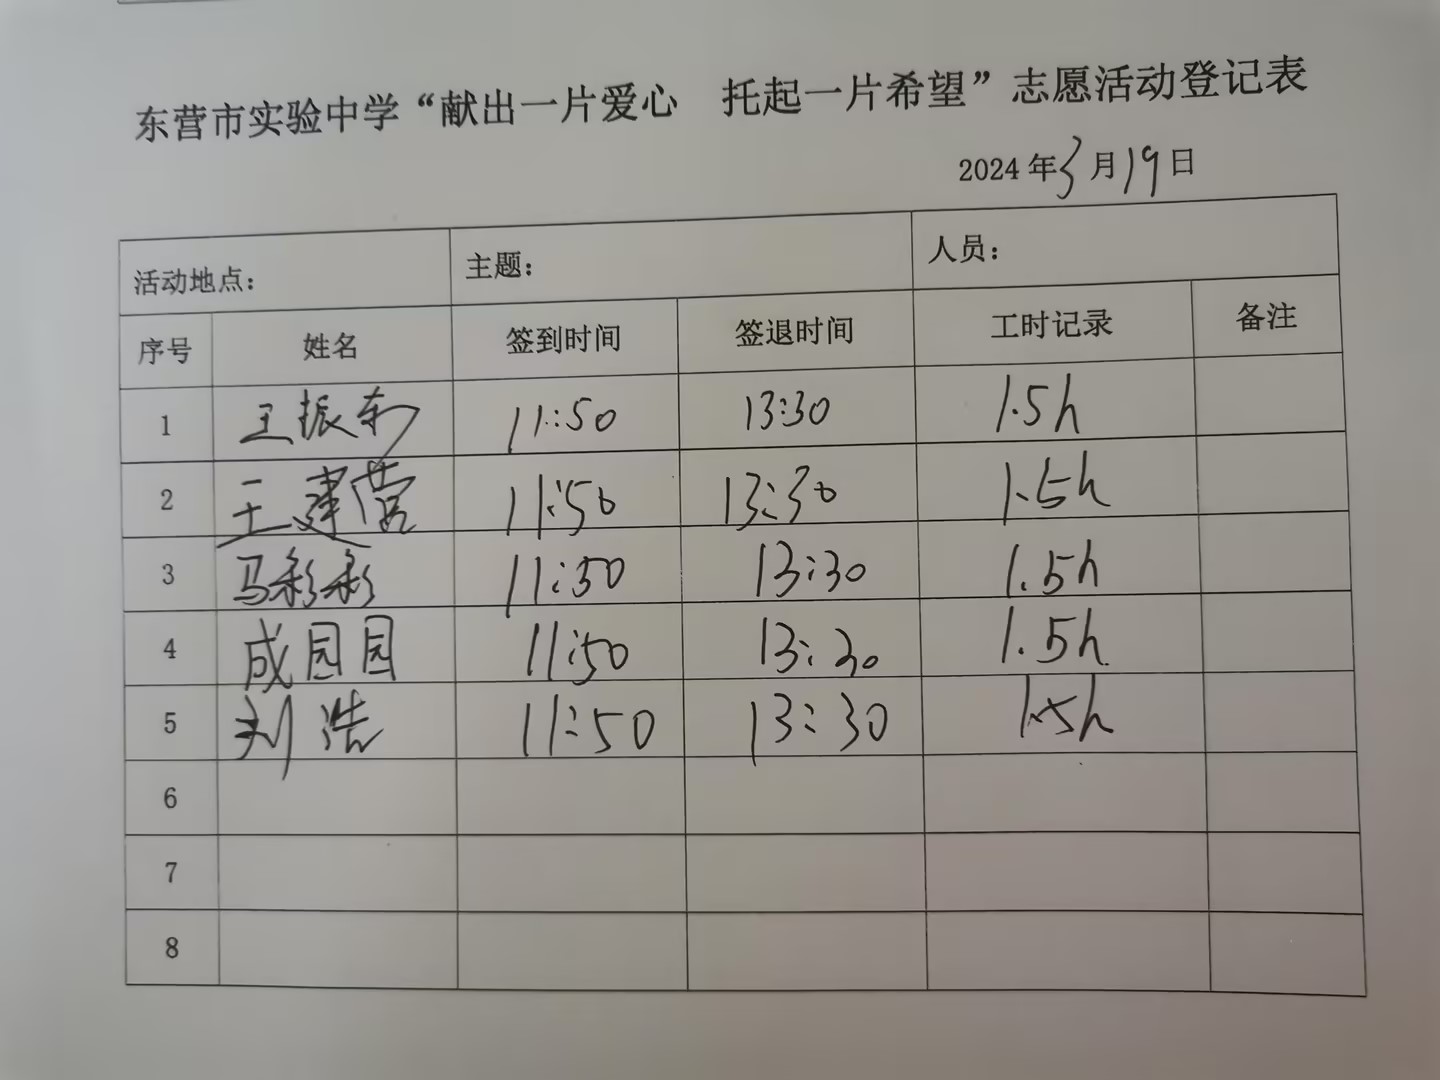 东营市实验中学“献出一片爱心 托起一片希望”志愿活动登记表
2024年3月19日
活动地点： 主题： 人员：
序号 姓名 签到时间 签退时间 工时记录 备注
1 王振东 11:50 13:30 1.5h
2 王建营 11:50 13:30 1.5h
3 马彩彩 11:50 13:30 1.5h
4 成园园 11:50 13:30 1.5h
5 刘浩 11:50 13:30 1.5h
6
7
8